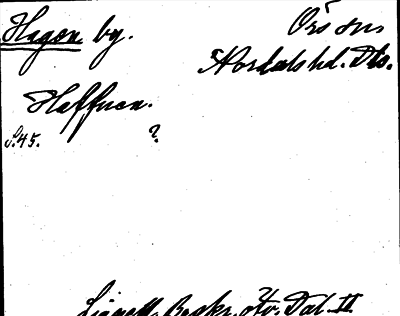 Hagen by. Örs sn
Nordals hd. Dls.
Haffnen.
S.45. ?
Lignell, Beskr. öfv. Dal. II